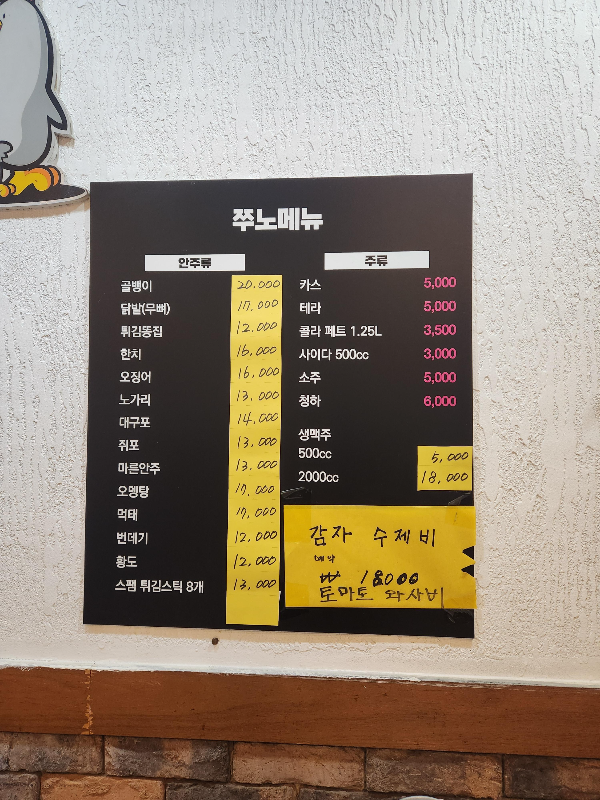 쭈노메뉴
안주류
골뱅이 20.000
닭발(무뼈) 17.000
튀김똥집 12.000
한치 16,000
오징어 16,000
노가리 13,000
대구포 14,000
쥐포 13,000
마른안주 13,000
오뎅탕 17,000
먹태 17,000
번데기 12,000
황도 12,000
스팸 튀김스틱 8개 13,000
주류
카스 5,000
테라 5,000
콜라 페트 1.25L 3,500
사이다 500cc 3,000
소주 5,000
청하 6,000
생맥주
500cc 5,000
2000cc 18,000
감자 수제비
예약
₩ 18000
토마토 와사비